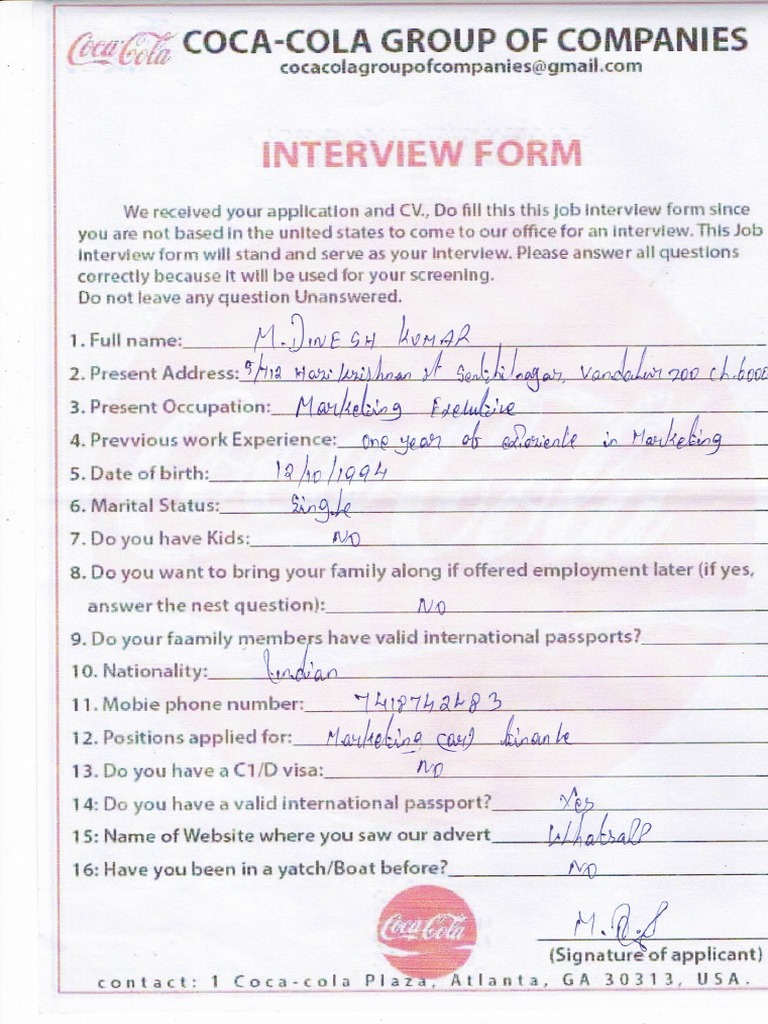 Coca-Cola COCA-COLA GROUP OF COMPANIES
cocacolagroupofcompanies@gmail.com
INTERVIEW FORM
We received your application and CV., Do fill this this job interview form since
you are not based in the united states to come to our office for an interview. This Job
interview form will stand and serve as your interview. Please answer all questions
correctly because it will be used for your screening.
Do not leave any question Unanswered.
1. Full name: M. DINESH KUMAR
2. Present Address: 5/712 Hari Krishnan st Senthilnagar,
3. Present Occupation: Marketing
4. Prevvious work Experience: one year of in Marketing
5. Date of birth: 12/10/1994
6. Marital Status: Single
7. Do you have Kids: NO
8. Do you want to bring your family along if offered employment later (if yes,
answer the nest question): NO
9. Do your faamily members have valid international passports?
10. Nationality: Indian
11. Mobie phone number: 7418742483
12. Positions applied for: Marketing (or)
13. Do you have a C1/D visa: NO
14: Do you have a valid international passport? Yes
15: Name of Website where you saw our advert
16: Have you been in a yatch/Boat before? NO
Coca-Cola
(Signature of applicant)
contact: 1 Coca-cola Plaza, Atlanta, GA 30313, USA.